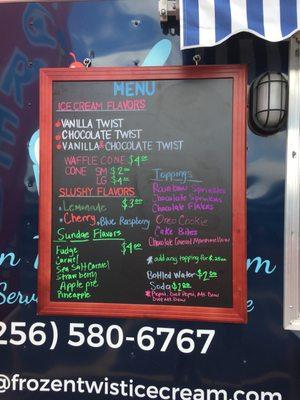 MENU
ICE CREAM FLAVORS
VANILLA TWIST
CHOCOLATE TWIST
VANILLA & CHOCOLATE TWIST
WAFFLE CONE $4.00
CONE SM $2.00
LG $4.00
SLUSHY FLAVORS
Lemonade $3.00
Cherry Blue Raspberry
Sundae Flavors $4.00
Fudge
Carmel
Sea Salt Carmel
Strawberry
Apple pie
Pineapple
Toppings
Rainbow Sprinkles
Chocolate Sprinkles
Chocolate Flakes
Oreo Cookie
Cake Bites
Chocolate Covered Marshmallow
* add any topping for $.25
Bottled Water $2.00
Soda $2.00
256) 580-6767
@frozentwisticecream.com